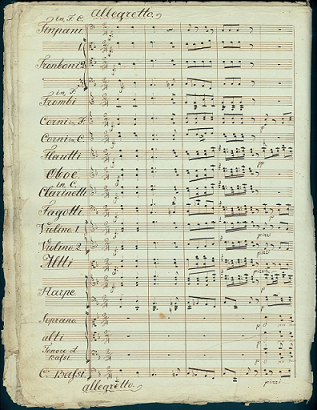 Allegretto
in F. C.
Timpani
1
Tromboni 2
3
in F.
Trombi
Corni in F.
Corni in C.
Flautti
Oboe
in C.
Clarinetti
Fagotti
Violino 1
Violino 2
Altti
Harpe
Soprano
alti
Tenore et
Bassi
C. Bassi
allegretto.